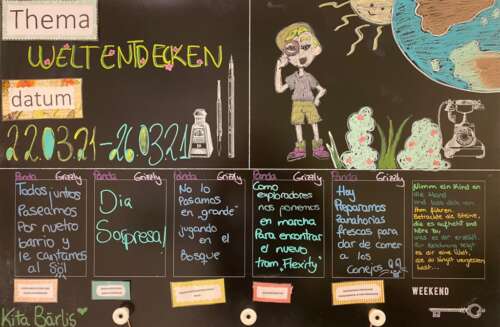 Thema
WELTENTDECKEN
datum
22.03.21-26.03.21
Panda Grizzly
Todos juntos
Paseamos
Por nuetro
barrio y
le cantamos
al sol
Panda Grizzly
Dia
Sorpresa!
Panda Grizzly
No lo
Pasamos
en "grande"
jugando
en el
Bosque
Panda Grizzly
Como
exploradores
nos ponemos
en marcha
Para encontrar
el nuevo
tram "Flexity"
Panda Grizzly
Hoy
Preparamos
Zanahorias
frescas para
dar de comer
a los
Conejos
Nimm ein Kind an
die Hand
und lass dich von
ihm führen
Betrachte die Steine,
die es aufhebt und
höre zu
was es dir erzählt.
zur Belohnung zeigt
es dir eine Welt,
die du längst vergessen
hast...
WEEKEND
Kita Bärlis